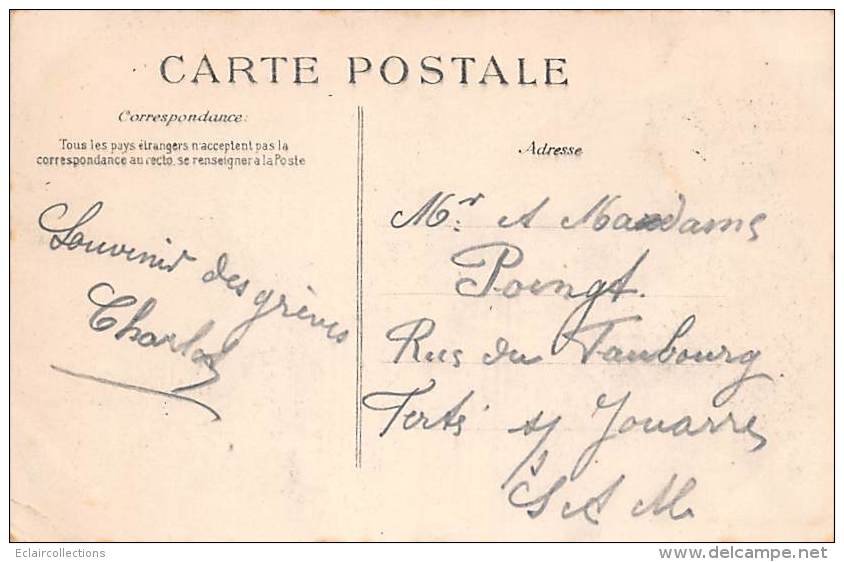 CARTE POSTALE
Correspondance:
Tous les pays étrangers n'acceptent pas la
correspondance au recto, se renseigner à la Poste
Souvenir des grèves
Charlot
Adresse
Mr. A Madame
Poingt.
Rue du Faubourg
Ferté s/ Jouarre
S. et M.
Eclaircollections
www.delcampe.net